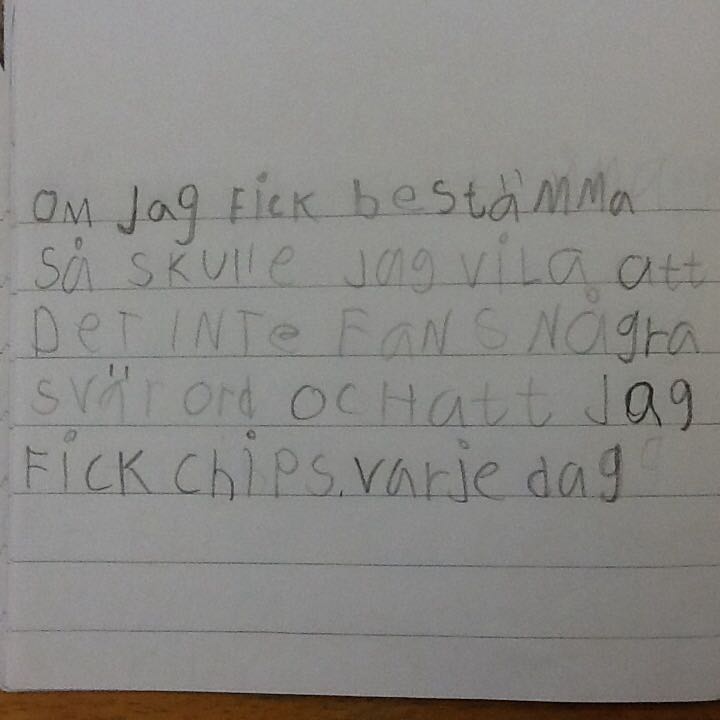 OM Jag Fick bestäMMa
Så SKUlle Jag viLa att
DeT INTe FaNS NÅgra
Svär ord OCH att Jag
FicK chiPs. varje dag